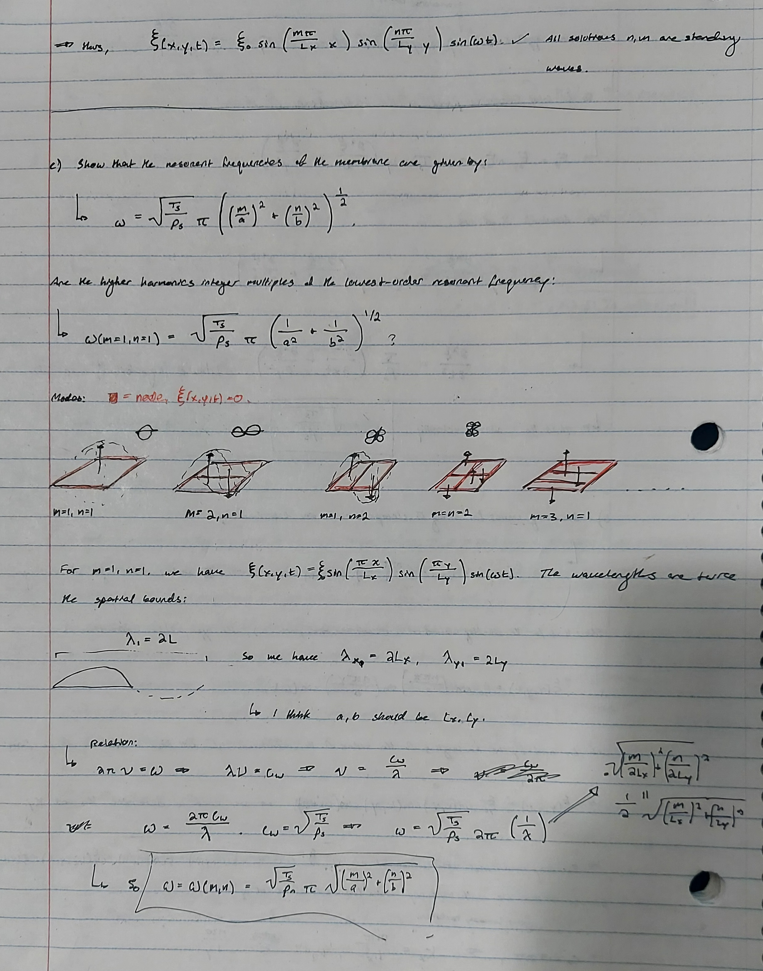 ⇒ Thus, ξ(x,y,t) = ξ₀ sin(mπ/Lx x) sin(nπ/Ly y) sin(ωt). ✓ All solutions n,m are standing
waves.
c) Show that the resonant frequencies of the membrane are given by:
↳ ω = √(Ts/ρs) π ((m/a)² + (n/b)²)^(1/2).
Are the higher harmonics integer multiples of the lowest-order resonant frequency:
↳ ω(m=1,n=1) = √(Ts/ρs) π (1/a² + 1/b²)^(1/2) ?
Modes: = node, ξ(x,y,t)=0.
m=1, n=1 m=2, n=1 m=1, n=2 m=n=2 m=3, n=1 ......
For m=1, n=1, we have ξ(x,y,t) = ξ₀ sin(πx/Lx) sin(πy/Ly) sin(ωt). The wavelengths are twice
the spatial bounds:
λ₁ = 2L
so we have λx₁ = 2Lx, λy₁ = 2Ly
↳ I think a,b should be Lx, Ly.
Relation:
↳ 2πν = ω ⇒ λν = cω ⇒ ν = cω/λ ⇒
√((m/2Lx)² + (n/2Ly)²)
=
1/2 √((m/Lx)² + (n/Ly)²)
ω = 2πcω/λ . cω = √(Ts/ρs) ⇒ ω = √(Ts/ρs) 2π (1/λ)
↳ So ω = ω(m,n) = √(Ts/ρs) π √((m/a)² + (n/b)²)